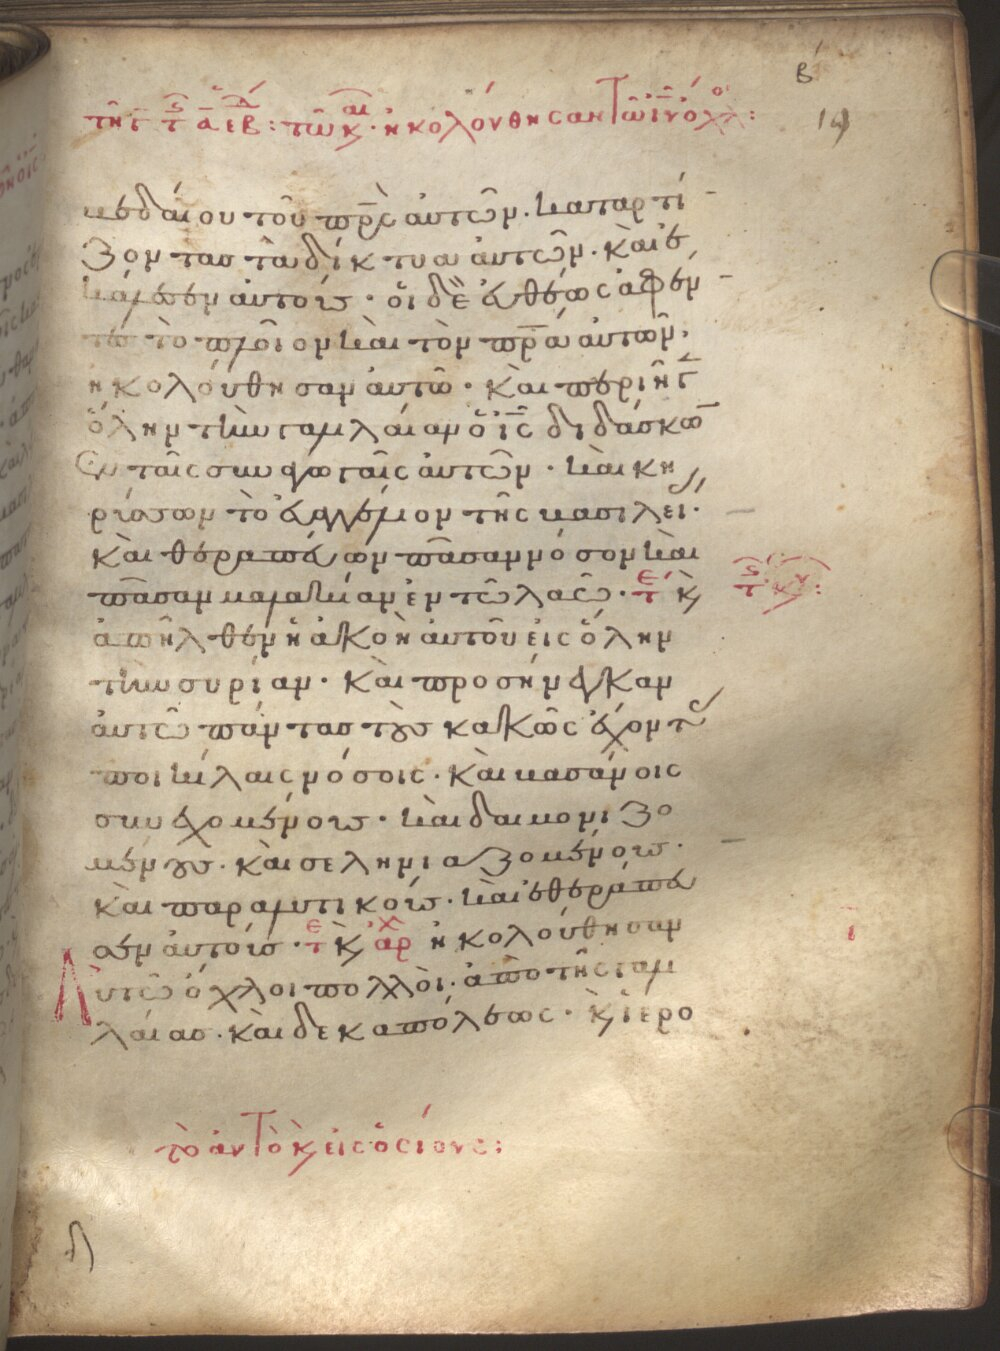 β
βεδαίου τοῦ πρς αὐτῶν. καταρτί
ζοντας τὰ δίκτυα αὐτῶν. καὶ ἐ
κάλεσεν αὐτοὺς. οἱ δὲ εὐθέως ἀφέν
τες τὸ πλοῖον καὶ τὸν πρα αὐτῶν.
ἠκολούθησαν αὐτῶ. καὶ περιῆγ
ὅλην τὴν γαλιλαίαν ὁ ις διδάσκων
ἐν ταῖς συναγωγαῖς αὐτῶν. καὶ κη
ρύσσων τὸ εὐαγγέλιον τῆς βασιλεί.
καὶ θεραπεύων πᾶσαν νόσον καὶ
πᾶσαν μαλακίαν ἐν τῶ λαῶ. τε κ
ἀπῆλθεν ἡ ἀκοὴ αὐτοῦ εἰς ὅλην
τὴν συρίαν. καὶ προσήνεγκαν
αὐτῶ πάντας τοὺς κακῶς ἔχοντ
ποικίλαις νόσοις. καὶ βασάνοις
συνεχομένους. καὶ δαιμονιζο
μένους. καὶ σεληνιαζομένους.
καὶ παραλυτικούς. καὶ ἐθεράπευ
σεν αὐτούς. τε κ αρχ ἠκολούθησαν
αὐτῶ ὄχλοι πολλοὶ. ἀπὸ τῆς γαλ
λαίας. καὶ δεκαπόλεως. κ ἱερο
τὸ αὐτὸ κ εἰς ὁσίους: